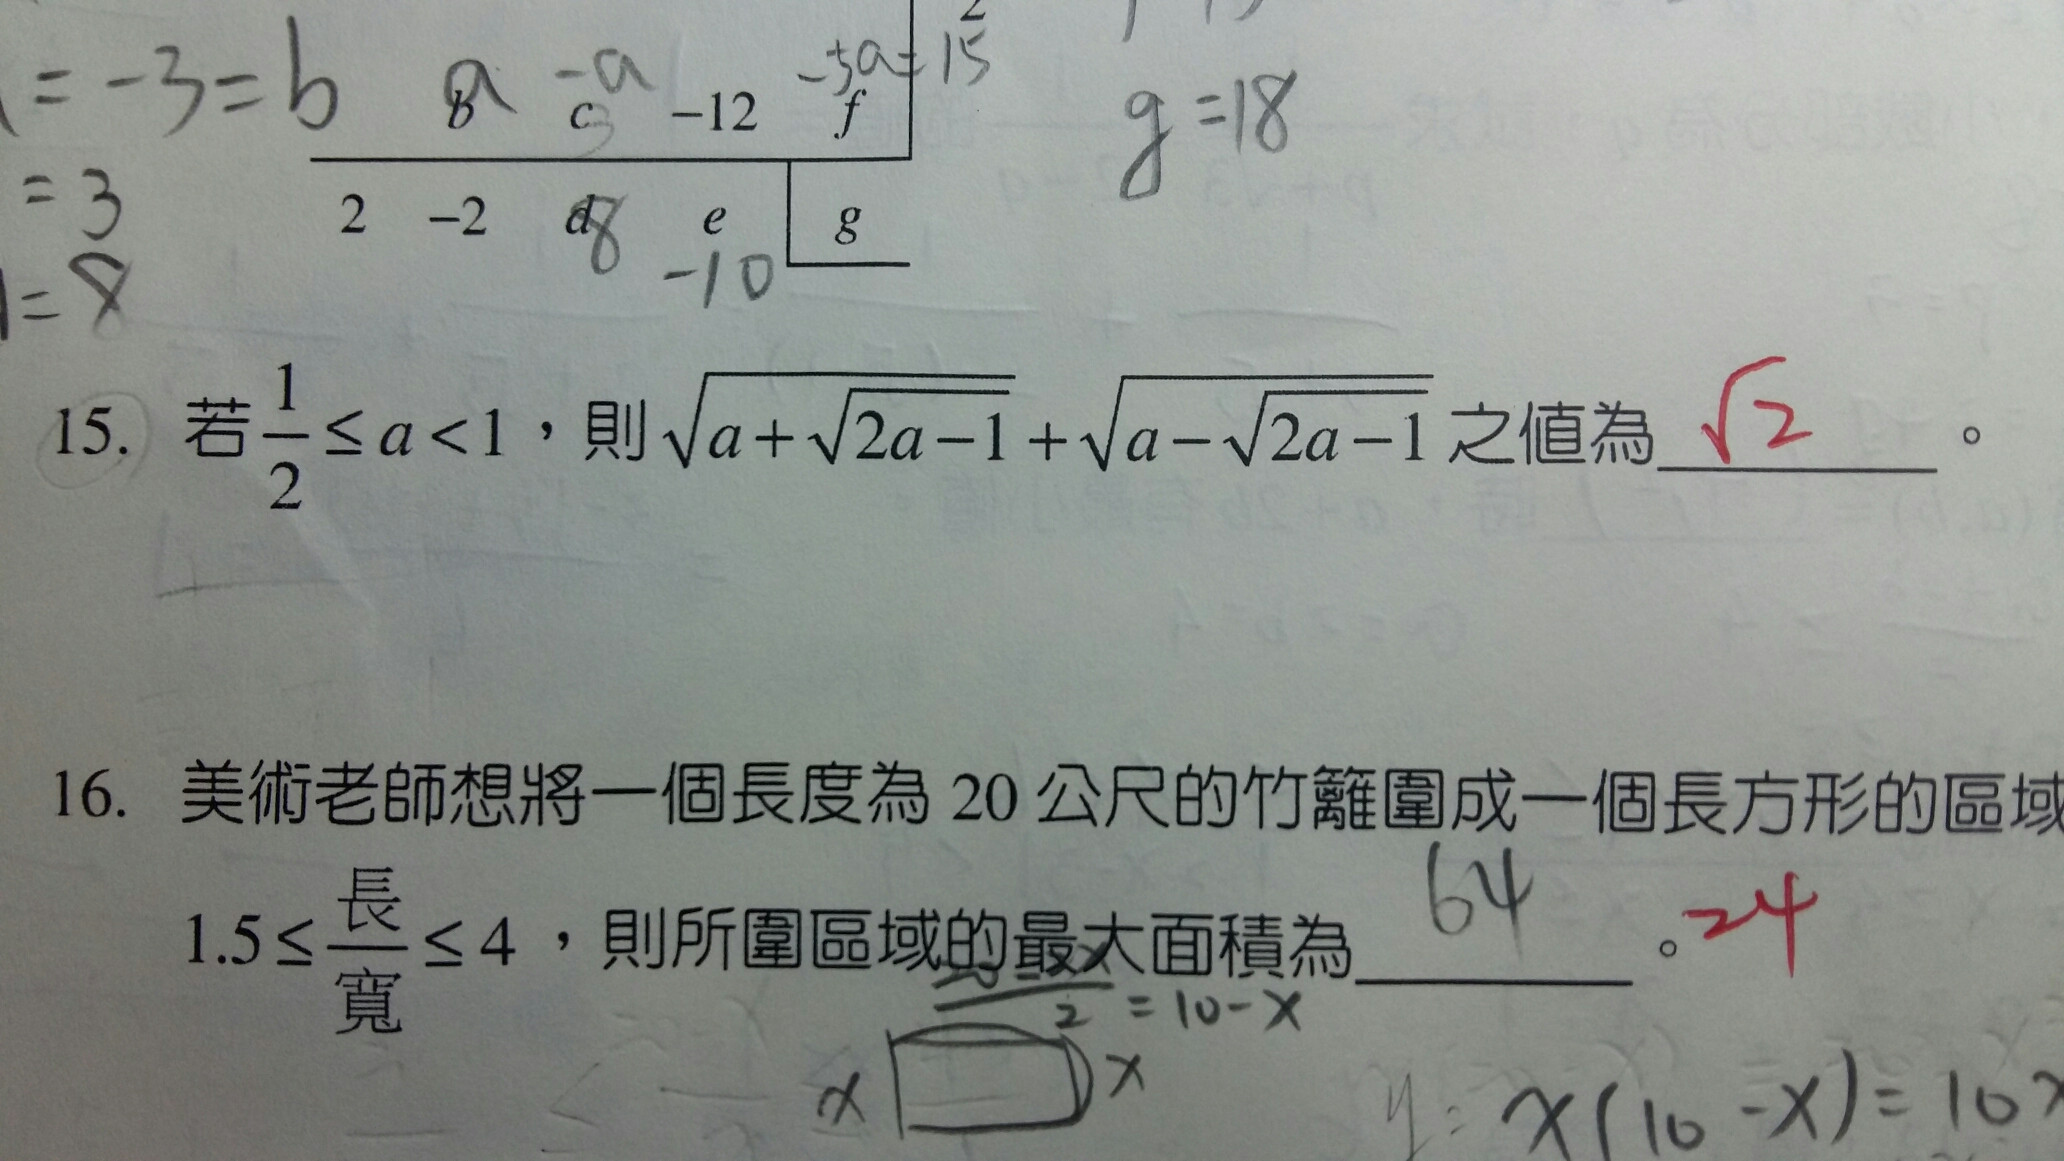 = -3 = b a -a -3a = 15
b c -12 f g = 18
= 3 2 -2 d e g
8 -10
= 8
15. 若 1/2 ≤ a < 1，則 √(a+√(2a-1)) + √(a-√(2a-1)) 之值為 √2 。
16. 美術老師想將一個長度為 20 公尺的竹籬圍成一個長方形的區域
1.5 ≤ 長/寬 ≤ 4，則所圍區域的最大面積為 64 。 24
2 = 10 - x
x x
y = x(10 - x) = 10x